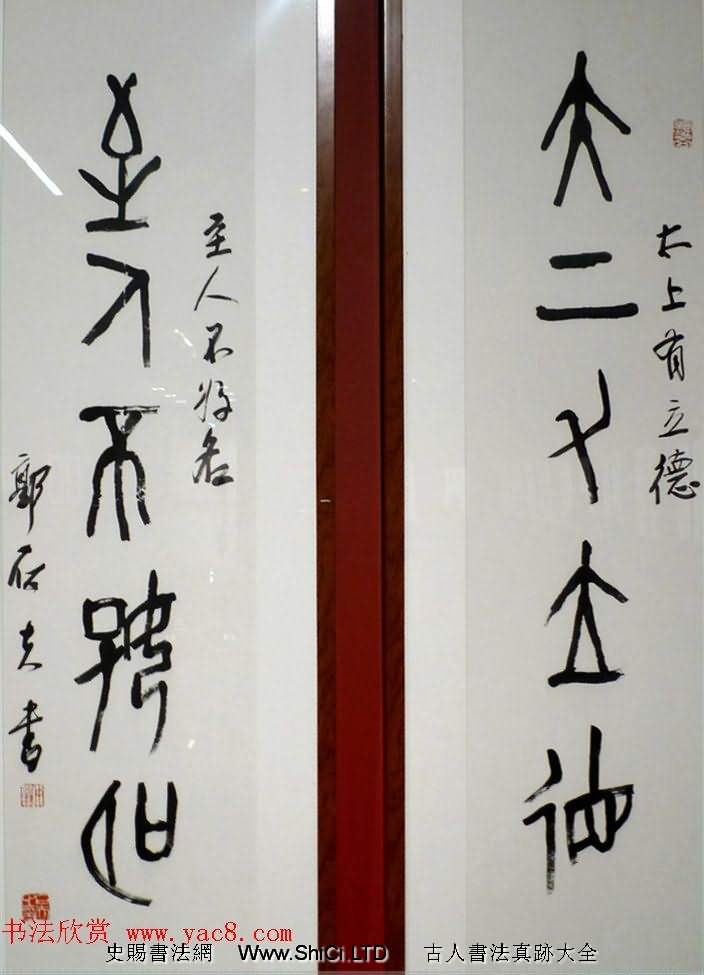 太上有立德
太上有立德
至人不将名
至人不将名
郭石夫書
书法欣赏 www.yac8.com
史賜書法網 Www.ShiCi.LTD 古人書法真跡大全